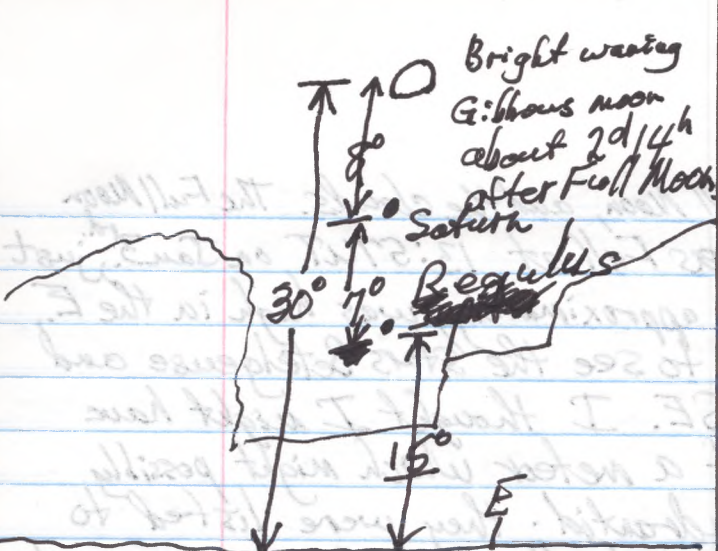 Bright waning
Gibbous moon
about 2d 14h
after Full Moon
8°
Saturn
Regulus
30°
7°
15°
E